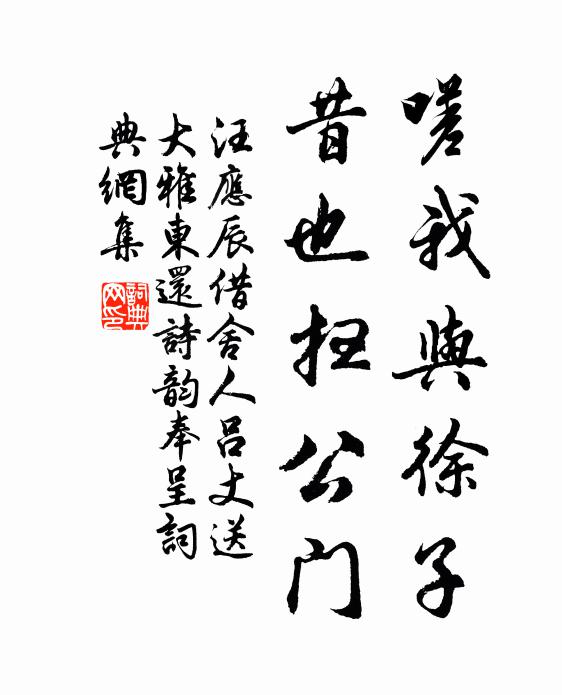 嗟我與徐子
昔也抂公門
汪應辰借舍人呂丈送
大雅東還詩韵奉呈詞
典網集
詞典
网印